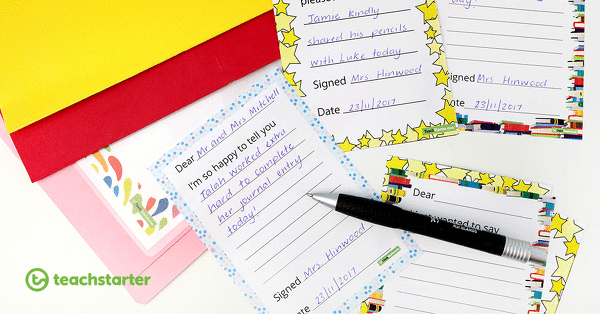 please
Jamie kindly
shared his pencils
with Luke today.
Signed Mrs Hinwood
Date 23/11/2017
Teach Starter
Signed Mrs Hinwood
Date 23/11/2017
Dear Mr and Mrs Mitchell
I'm so happy to tell you
Talah worked extra
hard to complete
her journal entry
today.
Signed Mrs Hinwood
Date 23/11/2017
Dear
wanted to say
teachstarter